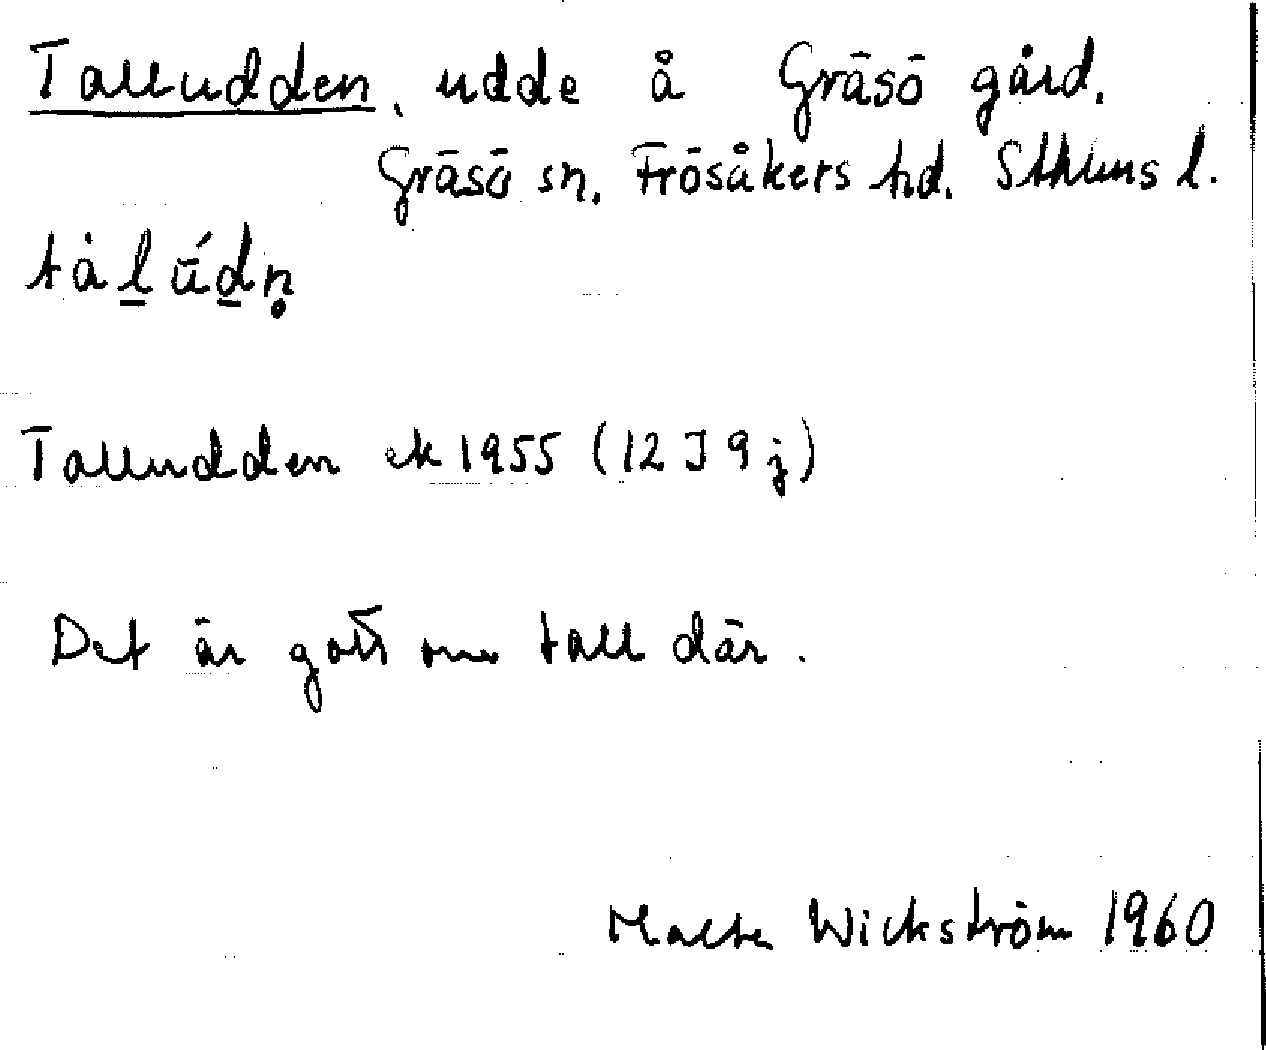 Talludden, udde å Gräsö gård.
Gräsö sn. Frösåkers hd. Sthlms l.
tȧl̲ū́d̲n̥
Talludden ek 1955 (12 J 9 j)
Det är gott om tall där.
Malte Wickström 1960